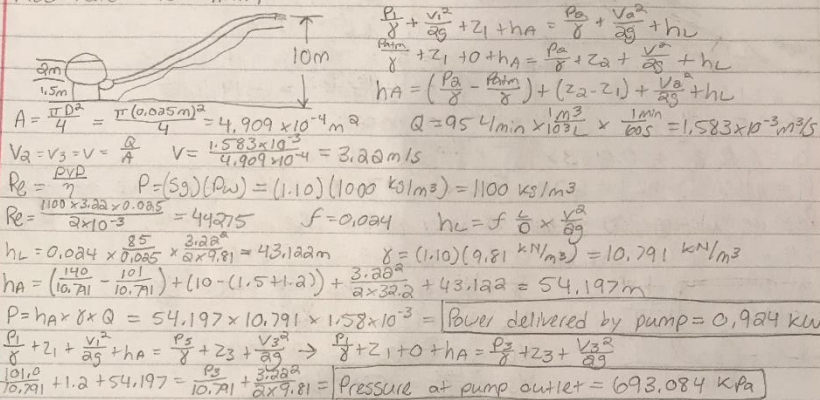 P1/γ + V1²/2g + Z1 + hA = P2/γ + V2²/2g + hL
Patm/γ + Z1 + 0 + hA = P2/γ + Z2 + V²/2g + hL
10m
2m
1.5m
hA = (P2/γ - Patm/γ) + (Z2 - Z1) + V2²/2g + hL
A = πD²/4 = π(0.025m)²/4 = 4.909 x10⁻⁴ m² Q = 95 L/min x 1m³/10³L x 1min/60s = 1.583x10⁻³ m³/s
V2 = V3 = V = Q/A V = 1.583x10⁻³/4.909x10⁻⁴ = 3.22 m/s
Re = ρVD/η P = (Sg)(Pw) = (1.10)(1000 kg/m³) = 1100 kg/m³
Re = 1100 x 3.22 x 0.025/2x10⁻³ = 44275 f = 0.024 hL = f L/D x V²/2g
hL = 0.024 x 85/0.025 x 3.22²/2x9.81 = 43.122m γ = (1.10)(9.81 kN/m³) = 10.791 kN/m³
hA = (140/10.791 - 101/10.791) + (10 - (1.5+1.2)) + 3.22²/2x32.2 + 43.122 = 54.197m
P = hA x γ x Q = 54.197 x 10.791 x 1.58x10⁻³ = Power delivered by pump = 0.924 kW
P1/γ + Z1 + V1²/2g + hA = P3/γ + Z3 + V3²/2g → P1/γ + Z1 + 0 + hA = P3/γ + Z3 + V3²/2g
101.0/10.791 + 1.2 + 54.197 = P3/10.791 + 3.22²/2x9.81 = Pressure at pump outlet = 693.084 KPa